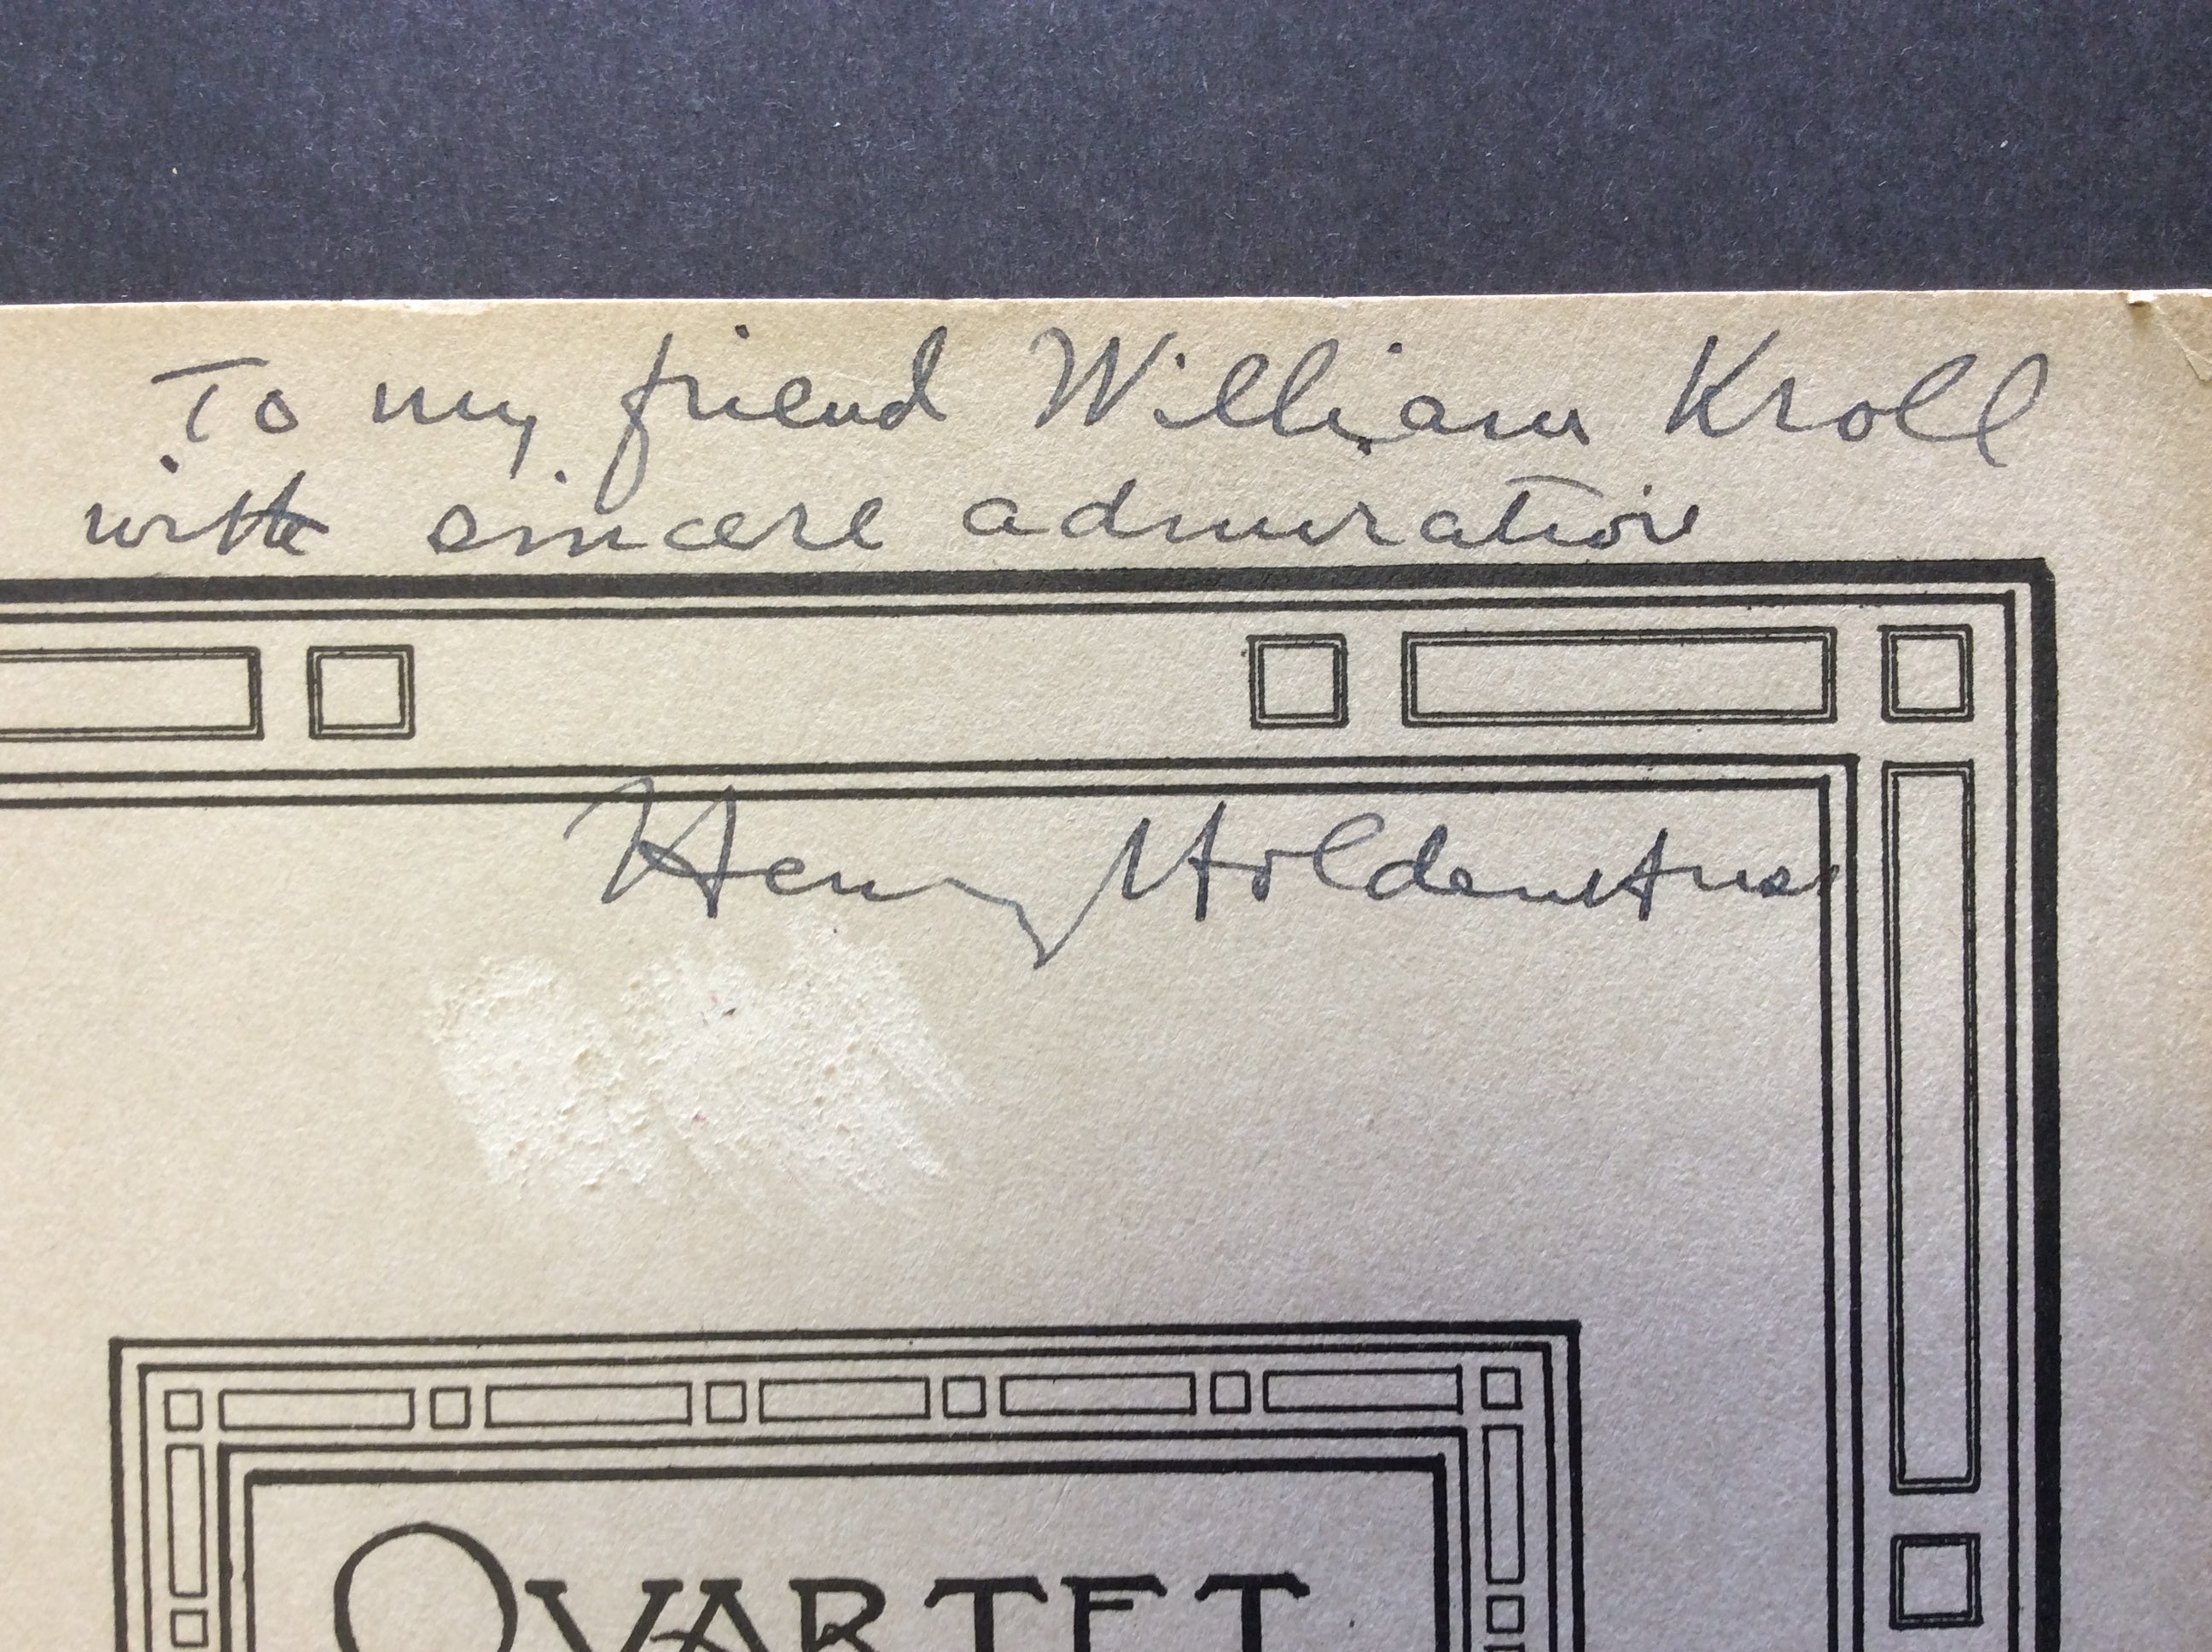 To my friend William Kroll
with sincere admiration
Henry Holden Huss
QVARTET